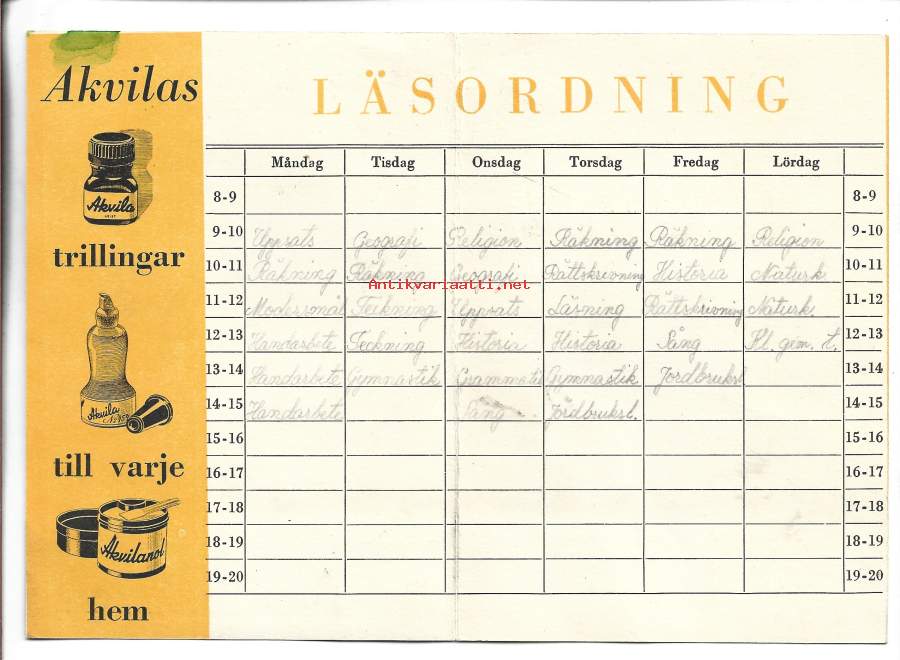 Akvilas
LÄSORDNING
Måndag Tisdag Onsdag Torsdag Fredag Lördag
8-9 8-9
9-10 Uppsats Geografi Religion Räkning Räkning Religion 9-10
Akvila
trillingar
10-11 Räkning Räkning Geografi Rättskrivning Historia Naturk. 10-11
Antikvariaatti.net
11-12 Modersmål Teckning Uppsats Läsning Rättskrivning Naturk. 11-12
12-13 Handarbete Teckning Historia Historia Sång Kl. gem. t. 12-13
13-14 Handarbete Gymnastik Grammatik Gymnastik Jordbruksl. 13-14
14-15 Handarbete Sång Jordbruksl. 14-15
Akvila
15-16 15-16
till varje
16-17 16-17
17-18 17-18
18-19 18-19
Akvilanol
19-20 19-20
hem